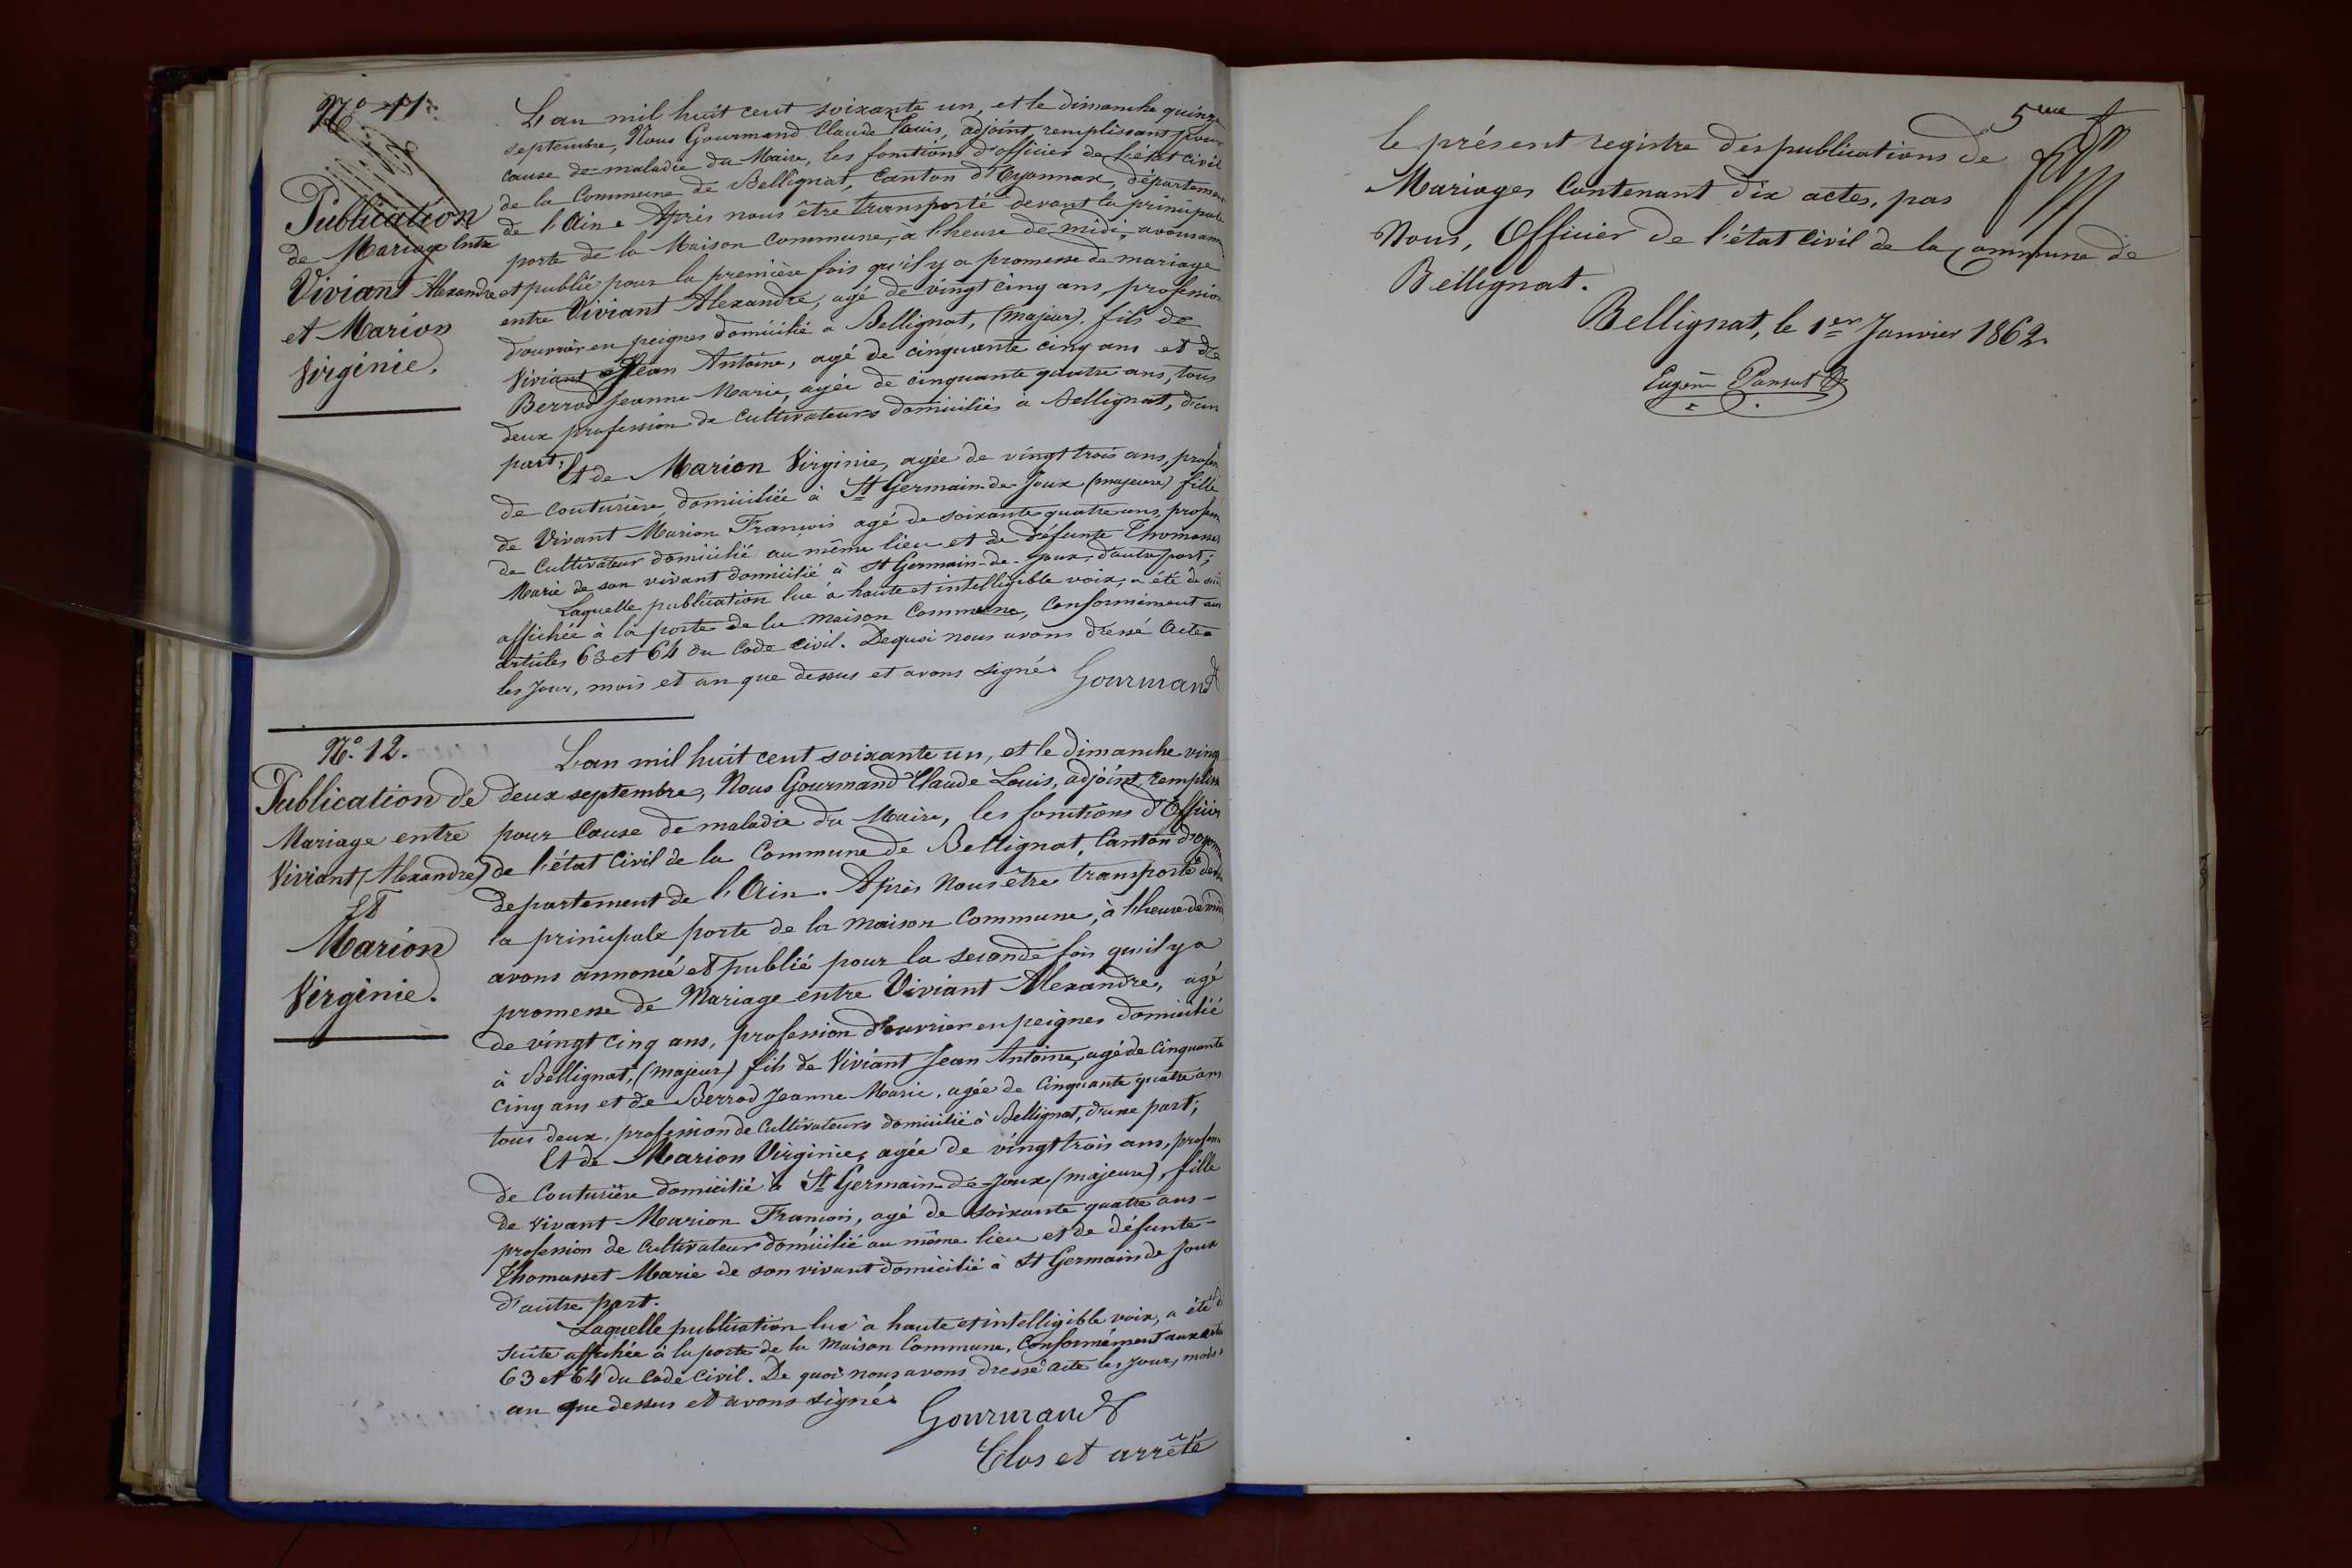 N° 11.
Publication
de Mariage Entre
Viviant Alexandre
et Marion
Virginie.
L'an mil huit cent soixante un, et le dimanche quinze
septembre, Nous Gourmand Claude Louis, adjoint, remplissant pour
cause de maladie du Maire, les fonctions d'officier de l'état civil
de la Commune de Bellignat, Canton d'Oyonnax, département
de l'Ain. Après nous être transporté devant la principale
porte de la Maison Commune, à l'heure de midi, avons
et publié pour la première fois qu'il y a promesse de mariage
entre Viviant Alexandre, agé de vingt cinq ans, profession
d'ouvrier en peignes domicilié a Bellignat, (majeur). fils de
Viviant Jean Antoine, agé de cinquante cinq ans et de
Berrod Jeanne Marie, agée de cinquante quatre ans, tous
deux profession de Cultivateurs domiciliés à Bellignat, d'un
part;
Et de Marion Virginie, agée de vingt trois ans,
de couturière, domiciliée à St Germain-de-Joux (majeure) fille
de Vivant Marion François agé de soixante quatre ans,
de Cultivateur domicilié au même lieu et de défunte Thomasset
Marie de son vivant domicilié à St Germain-de-Joux, d'autre part;
Laquelle publication lue à haute et intelligible voix, a été de
affichée à la porte de la maison Commune, Conformément aux
articles 63 et 64 du Code Civil. De quoi nous avons dressé Acte
les Jour, mois et an que dessus et avons signé.
Gourmand
N° 12.
Publication de
Mariage entre
Viviant (Alexandre)
et
Marion
Virginie.
L'an mil huit cent soixante un, et le dimanche vingt
deux septembre, Nous Gourmand Claude Louis, adjoint,
pour Cause de maladie du Maire, les fonctions d'Officier
de l'état Civil de la Commune de Bellignat, Canton
département de l'Ain. Après Nous être transporté
la principale porte de la maison Commune, à l'heure de midi
avons annoncé et publié pour la seconde fois qu'il y a
promesse de Mariage entre Viviant Alexandre, agé
de vingt cinq ans, profession d'ouvrier en peignes domicilié
à Bellignat, (majeur) fils de Viviant Jean Antoine, agé de Cinquante
Cinq ans et de Berrod Jeanne Marie, agée de Cinquante quatre ans
tous deux, profession de Cultivateurs domicilié à Bellignat, d'une part;
Et de Marion Virginie, agée de vingt trois ans,
de Couturière domicilié à St Germain-de-Joux (majeure), fille
de vivant Marion François, agé de soixante quatre ans -
profession de Cultivateur domicilié au même lieu et de défunte -
Thomasset Marie de son vivant domicilié à St Germain de Joux
d'autre part.
Laquelle publication lue à haute et intelligible voix, a été
suite affichée à la porte de la maison Commune, Conformément aux
63 et 64 du Code Civil. De quoi nous avons dressé acte les Jour, mois
an que dessus et avons signé.
Gourmand
Clos et arrêté
5me
le présent registre des publications de
Mariages Contenant Dix actes, pas
Nous, Officier de l'état Civil de la Commune de
Bellignat.
Bellignat, le 1er Janvier 1862.
Eugène